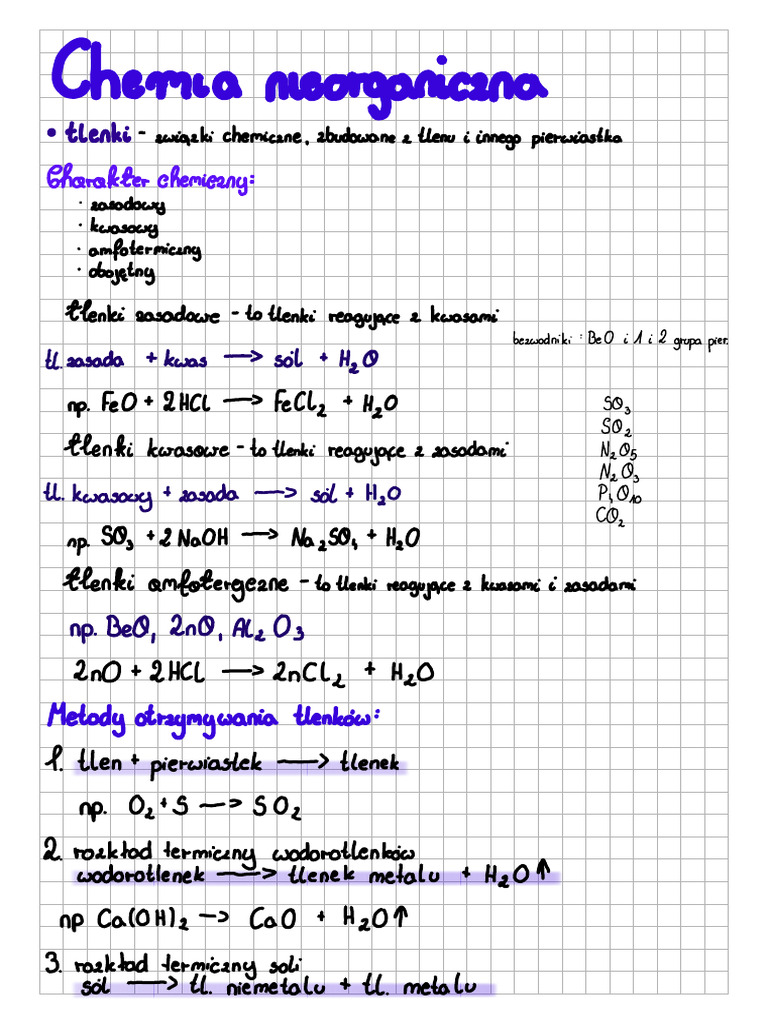 Chemia nieorganiczna
• tlenki - związki chemiczne, zbudowane z tlenu i innego pierwiastka
Charakter chemiczny:
· zasadowy
· kwasowy
· amfotermiczny
· obojętny
tlenki zasadowe - to tlenki reagujące z kwasami
bezwodniki : BeO i 1 i 2 grupa pier.
tl. zasada + kwas → sól + H₂O
np. FeO + 2HCl → FeCl₂ + H₂O
tlenki kwasowe - to tlenki reagujące z zasadami
tl. kwasowy + zasada → sól + H₂O
np. SO₃ + 2NaOH → Na₂SO₄ + H₂O
SO₃
SO₂
N₂O₅
N₂O₃
P₄O₁₀
CO₂
tlenki amfotergczne - to tlenki reagujące z kwasami i zasadami
np. BeO, ZnO, Al₂O₃
ZnO + 2HCl → ZnCl₂ + H₂O
Metody otrzymywania tlenków:
1. tlen + pierwiastek → tlenek
np. O₂ + S → SO₂
2. rozkład termiczny wodorotlenków
wodorotlenek → tlenek metalu + H₂O↑
np Ca(OH)₂ → CaO + H₂O↑
3. rozkład termiczny soli
sól → tl. niemetalu + tl. metalu